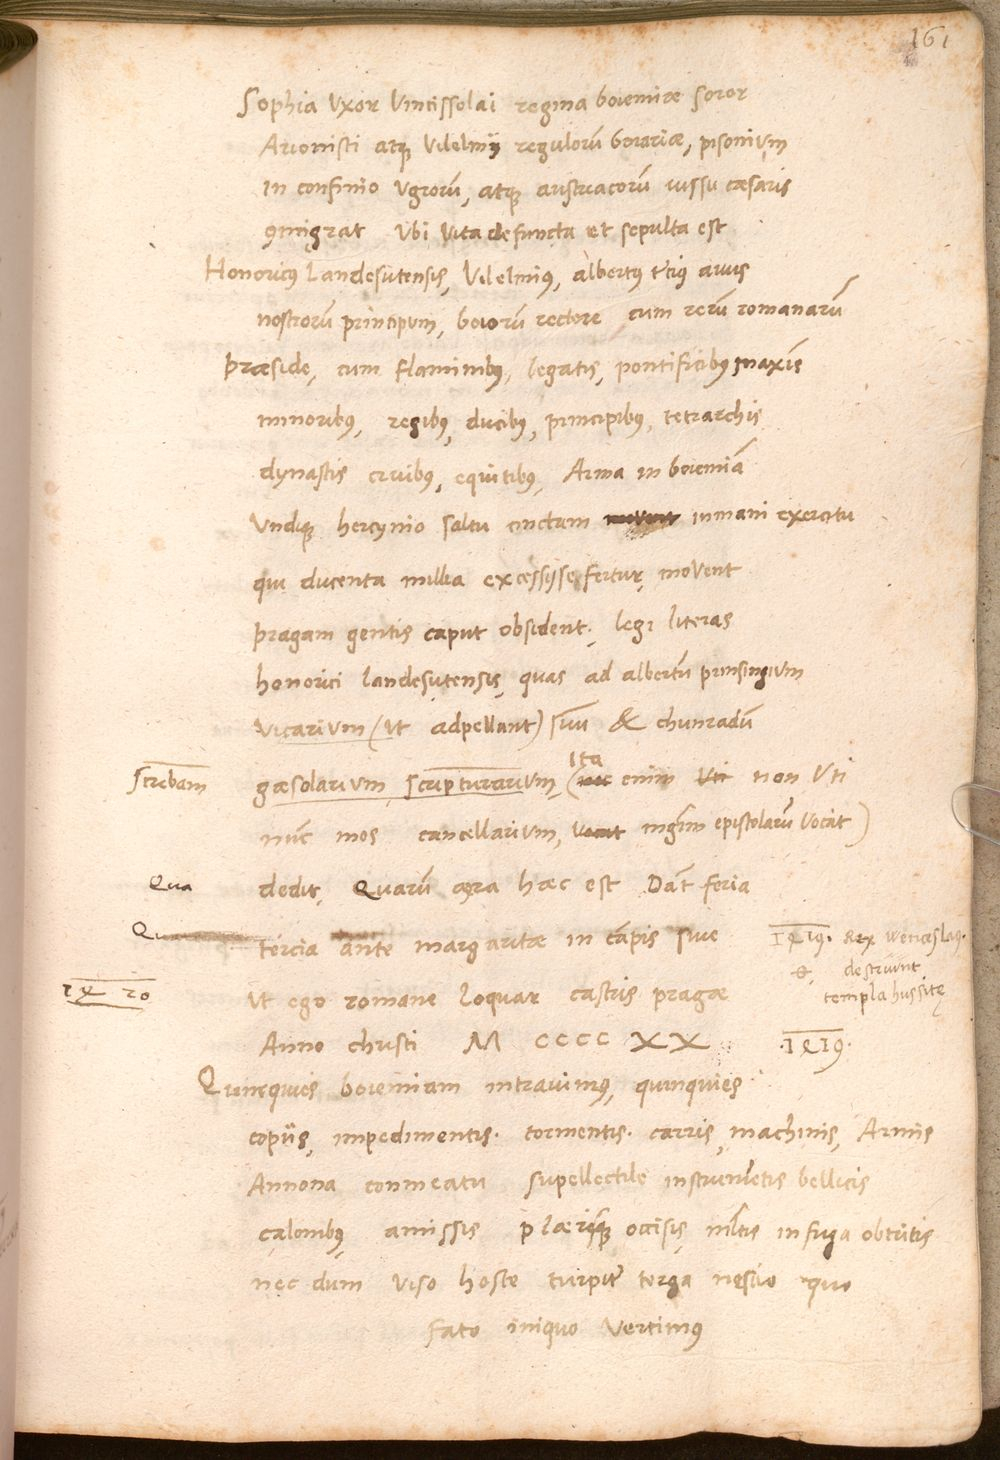 161
Sophia Vxor Vincissolai regina boiemiæ soror
Arionisti atq; Vilelmij regulorū boiariæ, pisonium
in confinio Vgrorū, atq; austriacorū iussu cæsaris
ꝯmigrat Vbi Vita defuncta et sepulta est
Honoricus Landesutensis, Vilelmius, albertus t'cius auus
nostrorū principum, boiorū rectore cum rerū romanarū
præside, cum flaminibus, legatis, pontificibus maxīs
minoribus, regibus, ducibus, principibus, tetrarchis
dynastis ciuibus, equitibus, Arma in boiemiā
Vndiq; hercynio saltu cinctam inmani exercitu
qui ducenta millia excessisse fertur, movent
pragam gentis caput obsident. legi literas
honorici landesutensis, quas ad albertū prinsingium
vicarium (Vt adpellant) suū & chunradū
scribam
gæsolarium, scripturarium, (Ita enim Vti non Vti
nūc mos cancellarium, mgrm epistolarū vocāt)
Qua
dedit, Quarū æra hæc est Dāt feria
Qu
tercia ante margaritæ in cāpis siue
1419. Rex wenceslaus.
& destruunt
templa hussitę
14 20
Vt ego romane loquar castris pragæ
Anno christi M CCCC XX
.1419.
Quinequies boiemiam intrauimus, quinquies
copijs, impedimentis. tormentis. carris, machinis, Armis
Annona conmeatu supellectile instrumētis bellicis
calonibus, amissis plærisq; occisis, mltis in fuga obtritis
nec dum viso hoste turpit' terga nescio quo
fato iniquo Vertimus